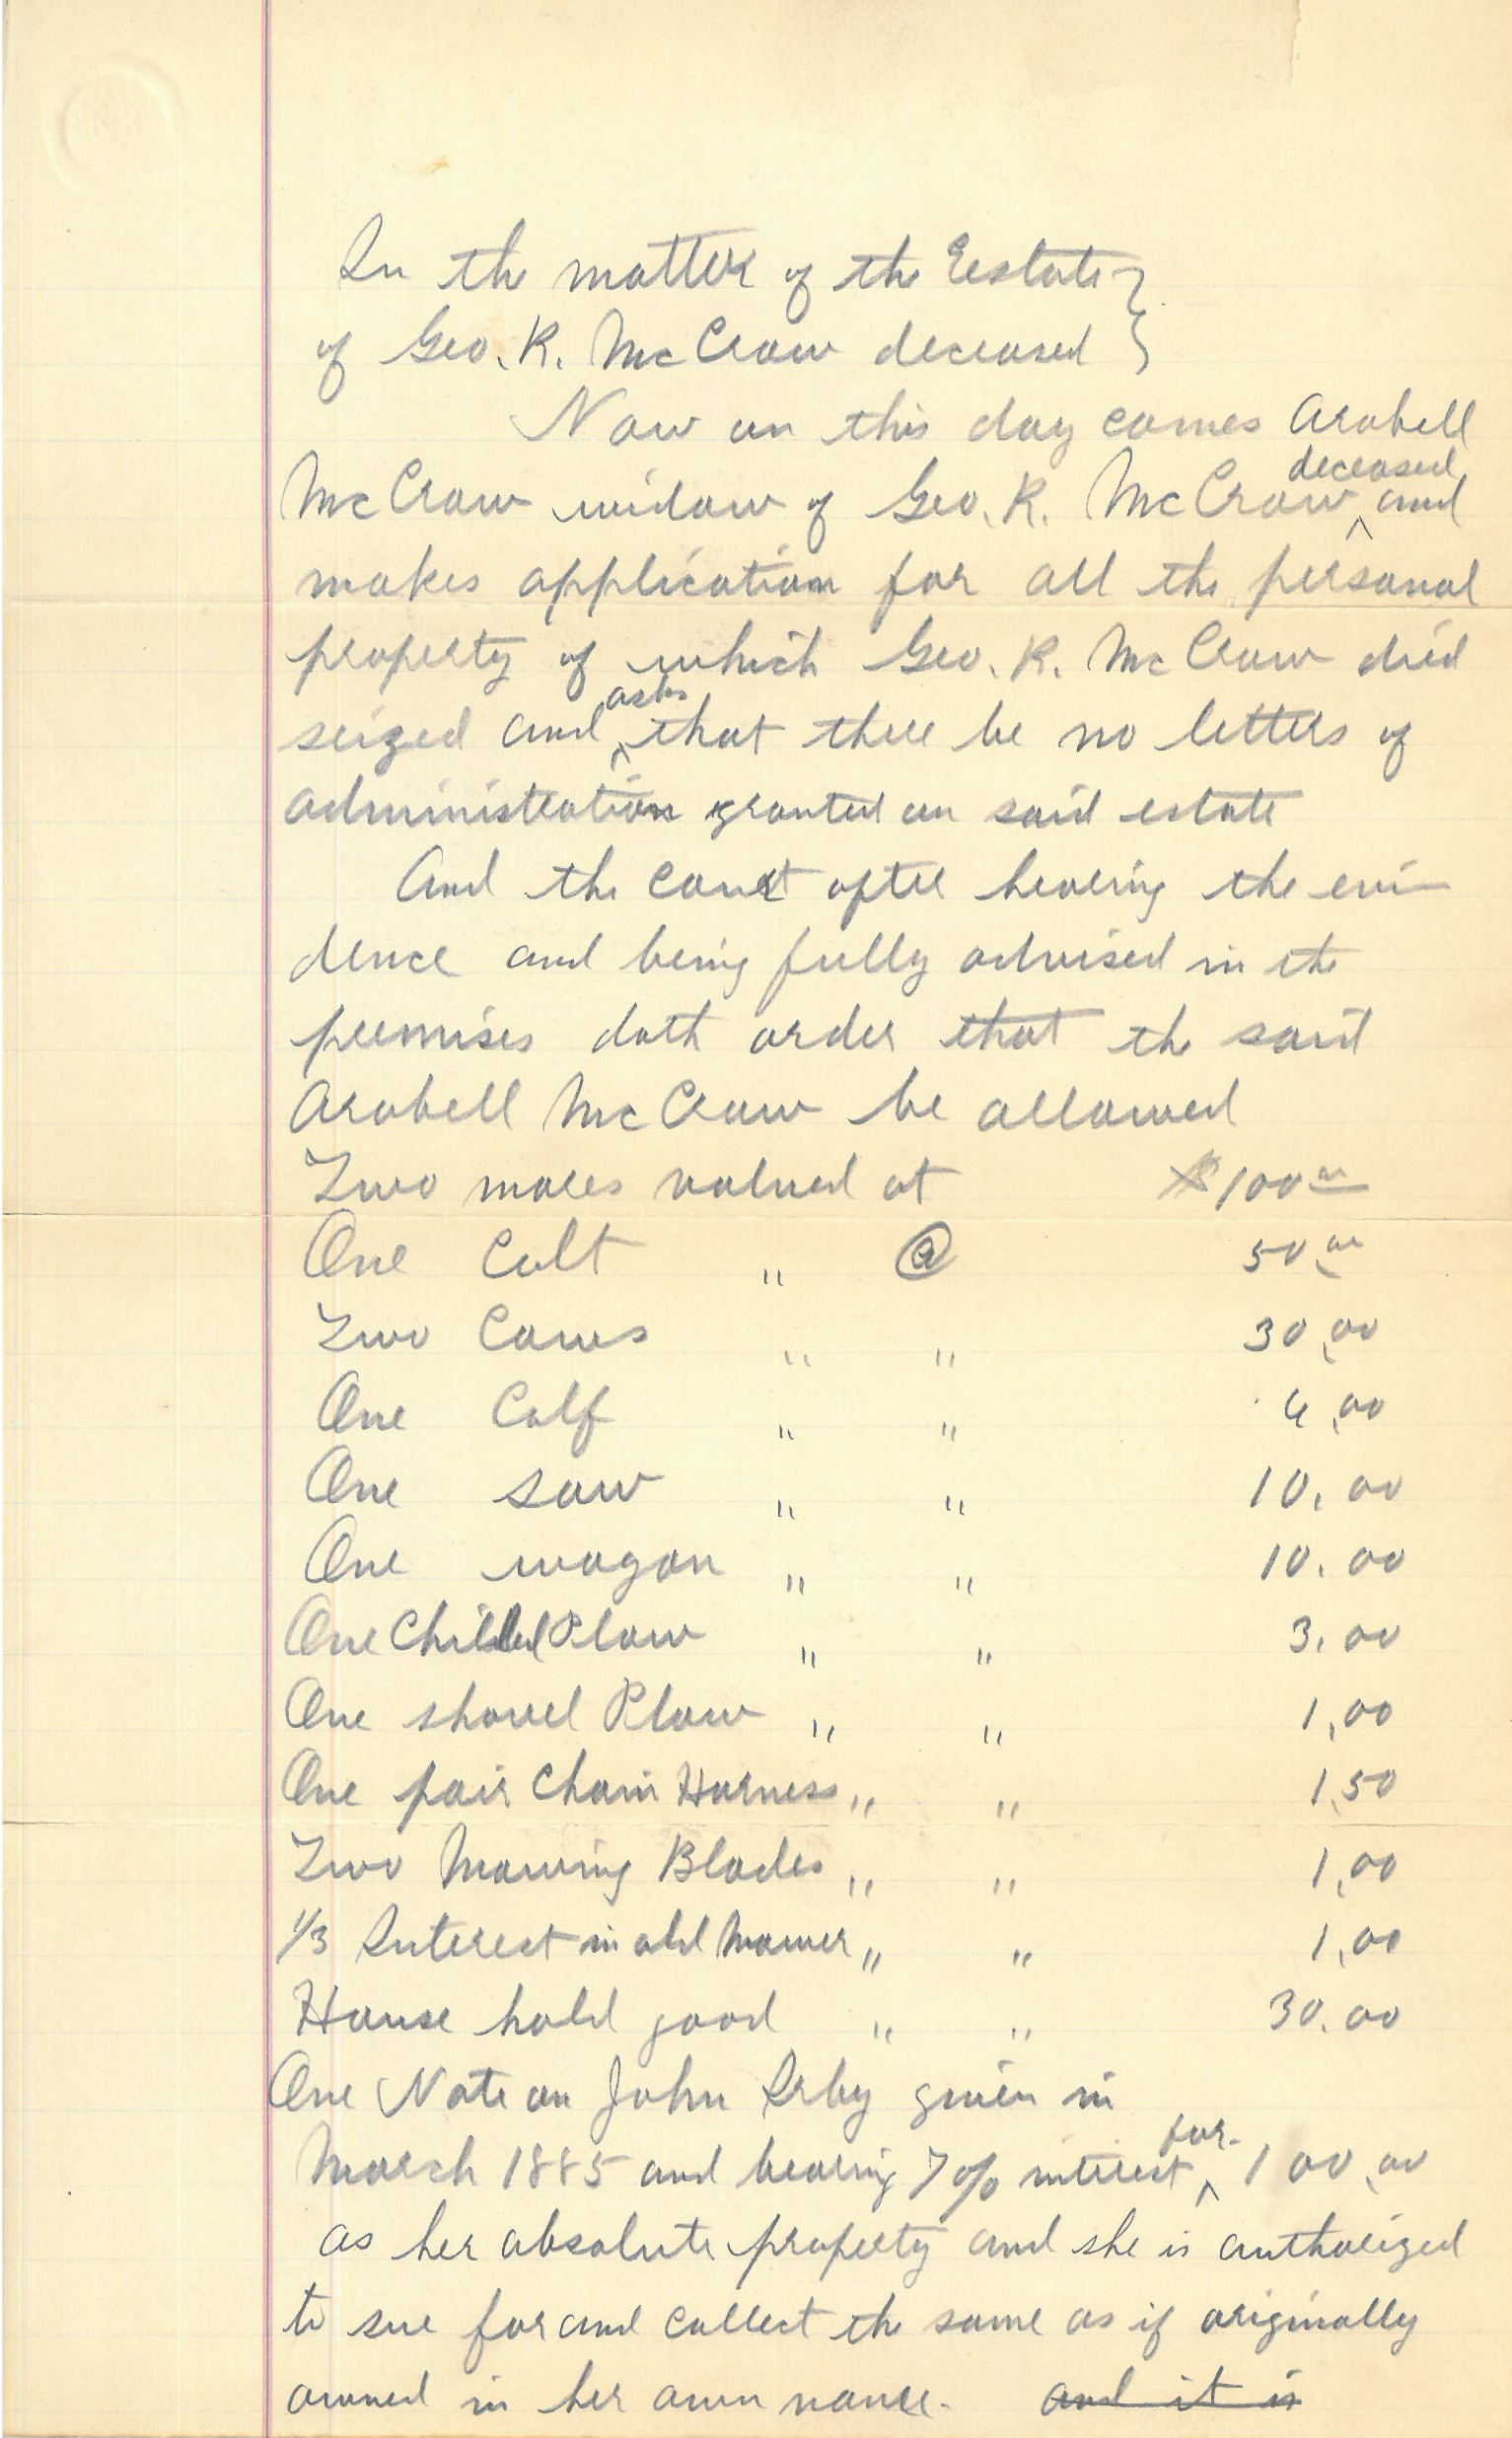 In the matter of the Eestate }
of Geo. R. McCraw deceased }
Now on this day comes Arabell
McCraw widow of Geo. R. McCraw ^deceased and
makes application for all the personal
property of which Geo. R. McCraw died
seized and ^asks that there be no letters of
administration granted on said estate
And the court after hearing the evi-
dence and being fully advised in the
premises doth order that the said
Arabell McCraw be allowed
Two mares valued at $100 00
One Colt " @ 50.00
Two Cows " " 30.00
One Calf " " 4.00
One sow " " 10.00
One wagon " " 10.00
One Chilled Plow " " 3.00
One shovel Plow " " 1.00
One pair Chain Harness " " 1.50
Two Mowing Blades " " 1.00
1/3 Interest in old Mower " " 1.00
House hold good " " 30.00
One Note on John Irby given in
March 1885 and bearing 7% interest ^for 100.00
as her absolute property and she is authorized
to sue for and collect the same as if originally
owned in her own name. and it is